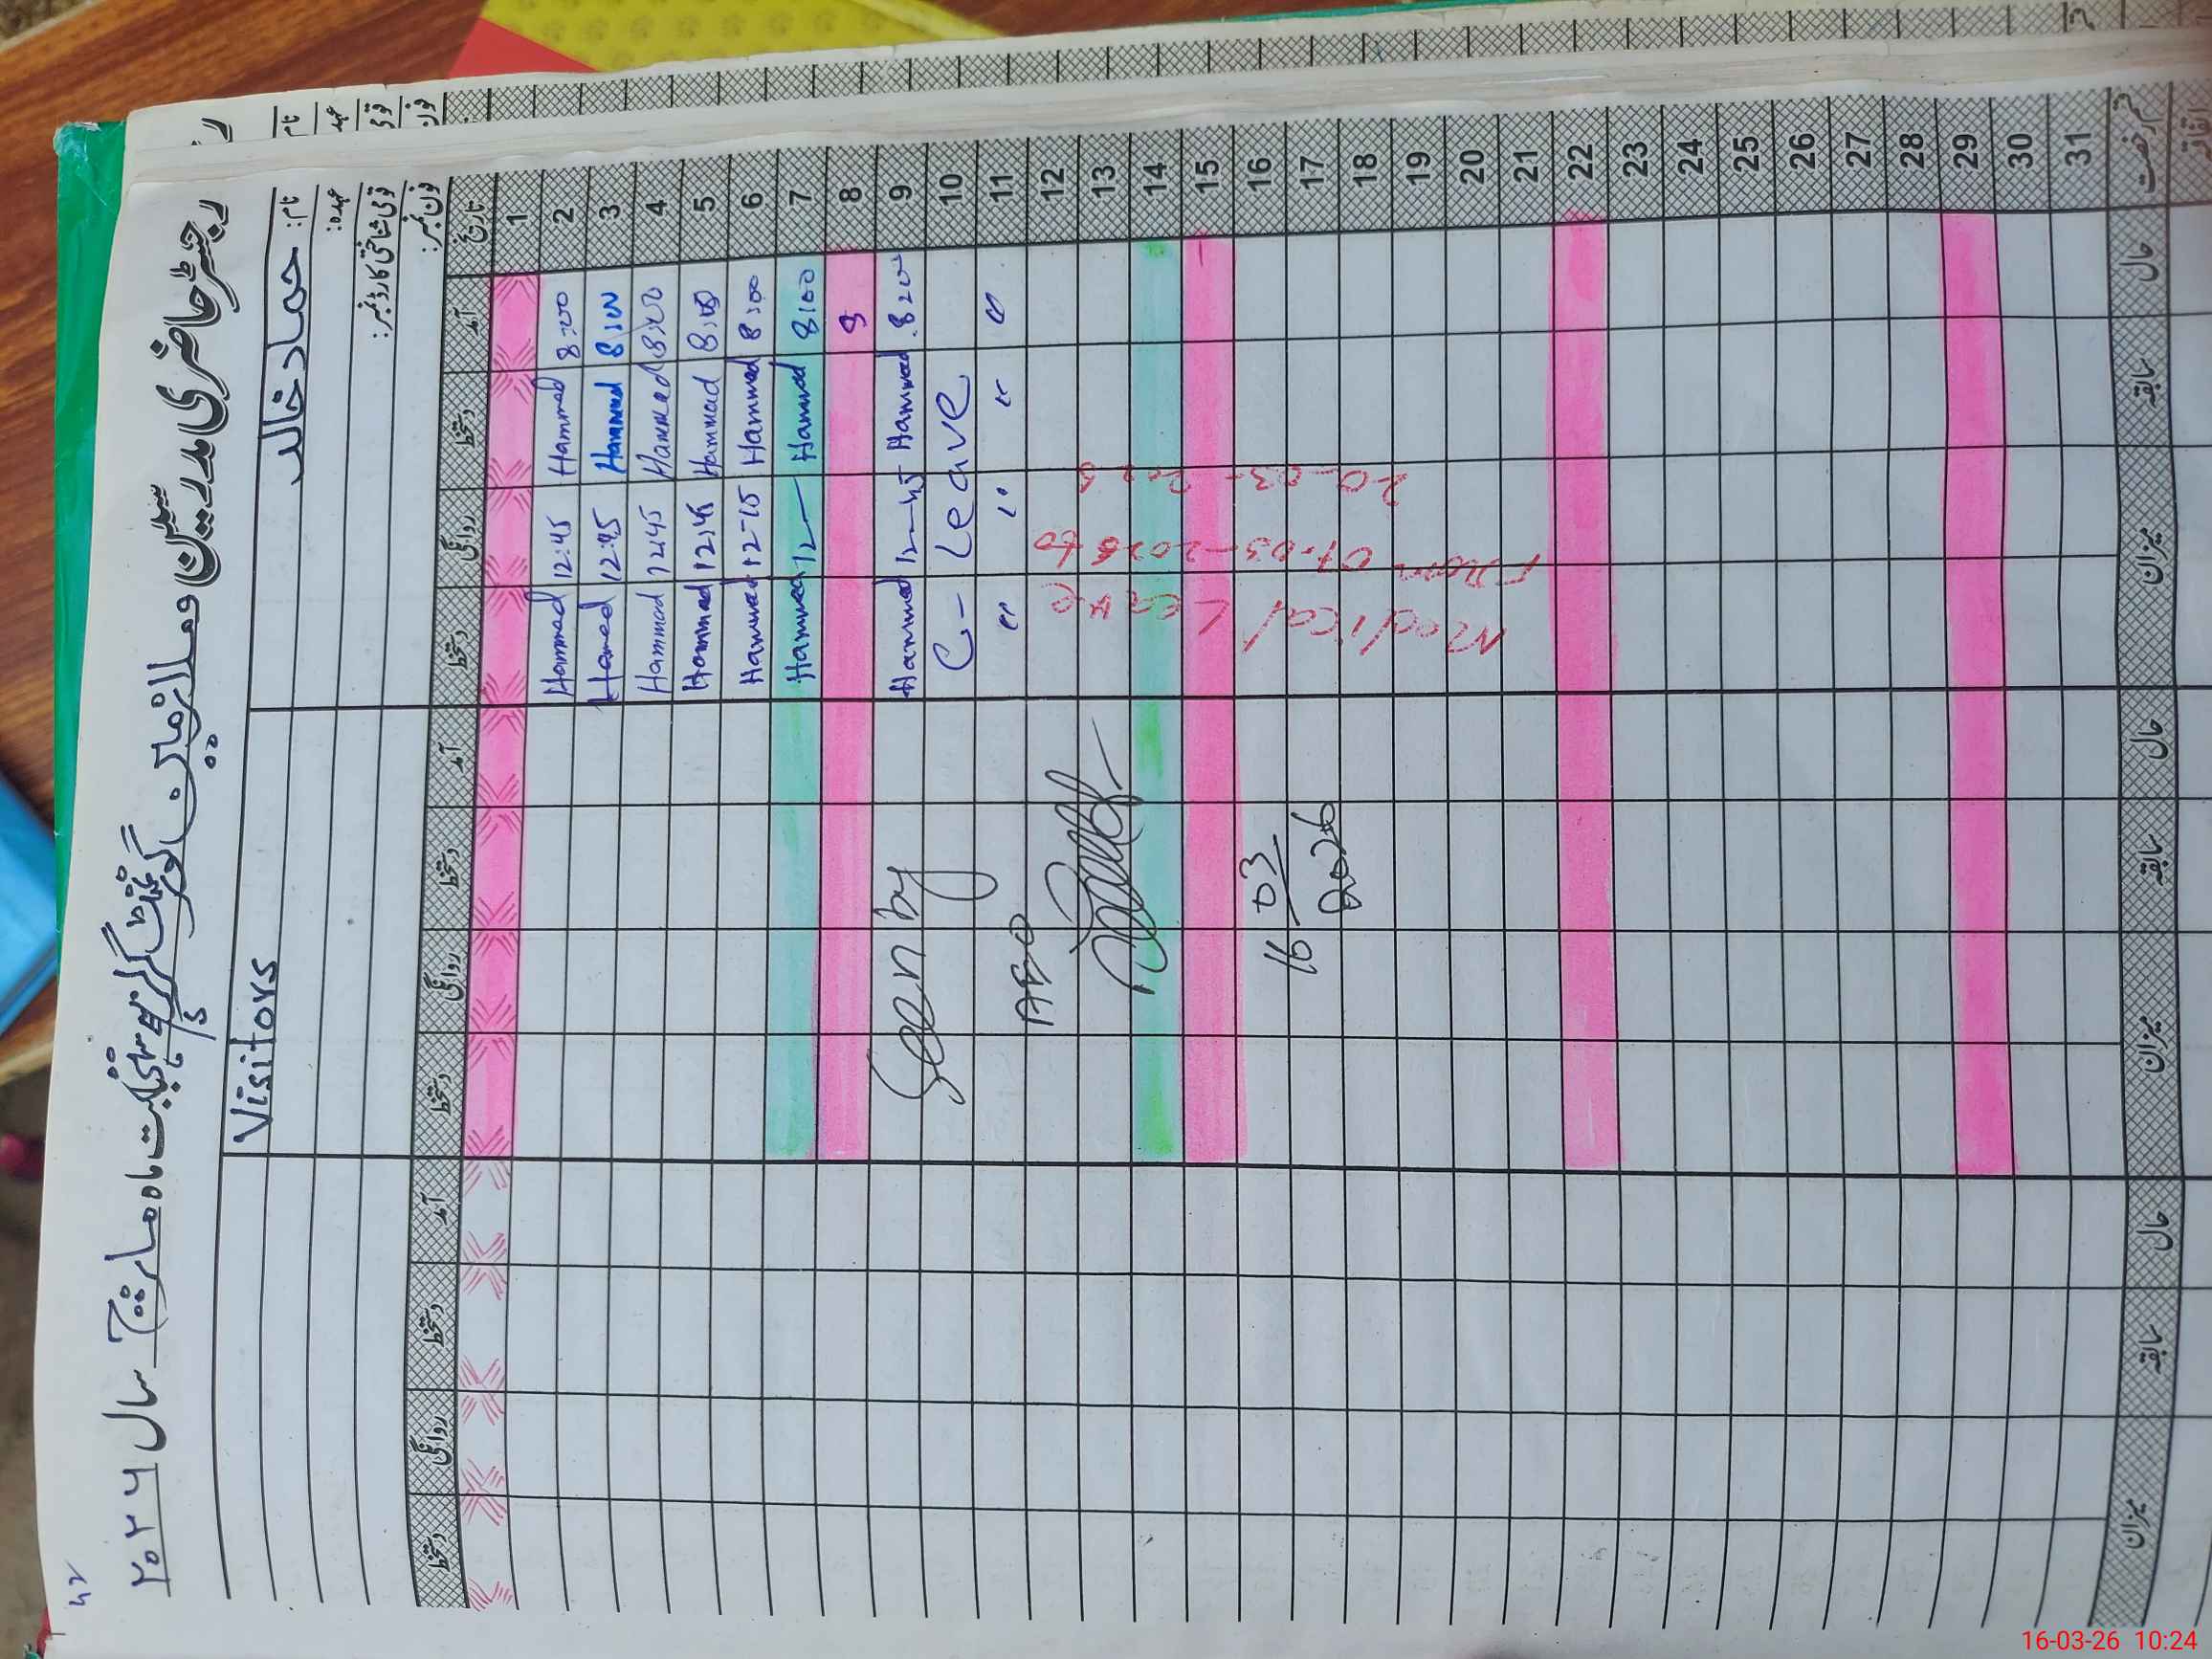 ۴۲
رجسٹر حاضری مدرسین و ملازمین گورنمنٹ گرلز ہائی سکول بابت ماہ مارچ سال ۲۰۲۶
نام: حماد خالد
Visitors
عہدہ:
قومی شناختی کارڈ نمبر:
فون نمبر:
تاریخ آمد دستخط روانگی دستخط آمد دستخط روانگی دستخط آمد دستخط روانگی دستخط
1
2 8:00 Hammad 12:45 Hammad
3 8:00 Hammad 12:45 Hammad
4 8:00 Hammad 12:45 Hammad
5 8:00 Hammad 12:45 Hammad
6 8:00 Hammad 12-15 Hammad
7 8:00 Hammad 12 Hammad
8 9
9 8:00 Hammad 12-45 Hammad
10 C-Leave
11 " " " "
12
13
14
15
16
17
18
19
20
21
22
23
24
25
26
27
28
29
30
31
Medical Leave
From 01-03-2026 to
20-03-2026
Seen by
AEO
16/03/2026
قسم رخصت حال سابقہ میزان حال سابقہ میزان حال سابقہ میزان
اتفاقیہ
16-03-26 10:24